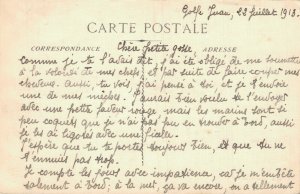 Golfe Juan, 22 juillet 1913.
CARTE POSTALE
CORRESPONDANCE
ADRESSE
Chère petite gosse,
Comme je te l'avais dit, j'ai été obligé de me soumettre
à la volonté de mes chefs, et par suite de faire couper mes
cheveux. Aussi, tu vois, j'ai pensé à toi et je t'envoie
une de mes mèches. J'aurais bien voulu te l'envoyer
avec une petite faveur rouge mais les marins sont si
peu coquets que je n'ai pas pu en trouver à bord, aussi
je les ai ligotés avec une ficelle.
J'espère que tu te portes toujours bien, et que tu ne
t'ennuies pas trop.
Je compte les jours avec impatience, car je m'embête
salement à bord; à la mer, ça va encore, m